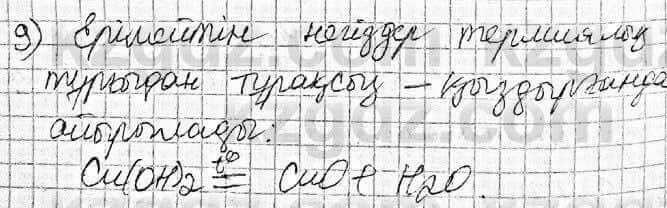 9) Ерімейтін негіздер термиялық
тұрғыдан тұрақсыз – қыздырғанда
айырылады:
Cu(OH)2 t°= CuO + H2O.